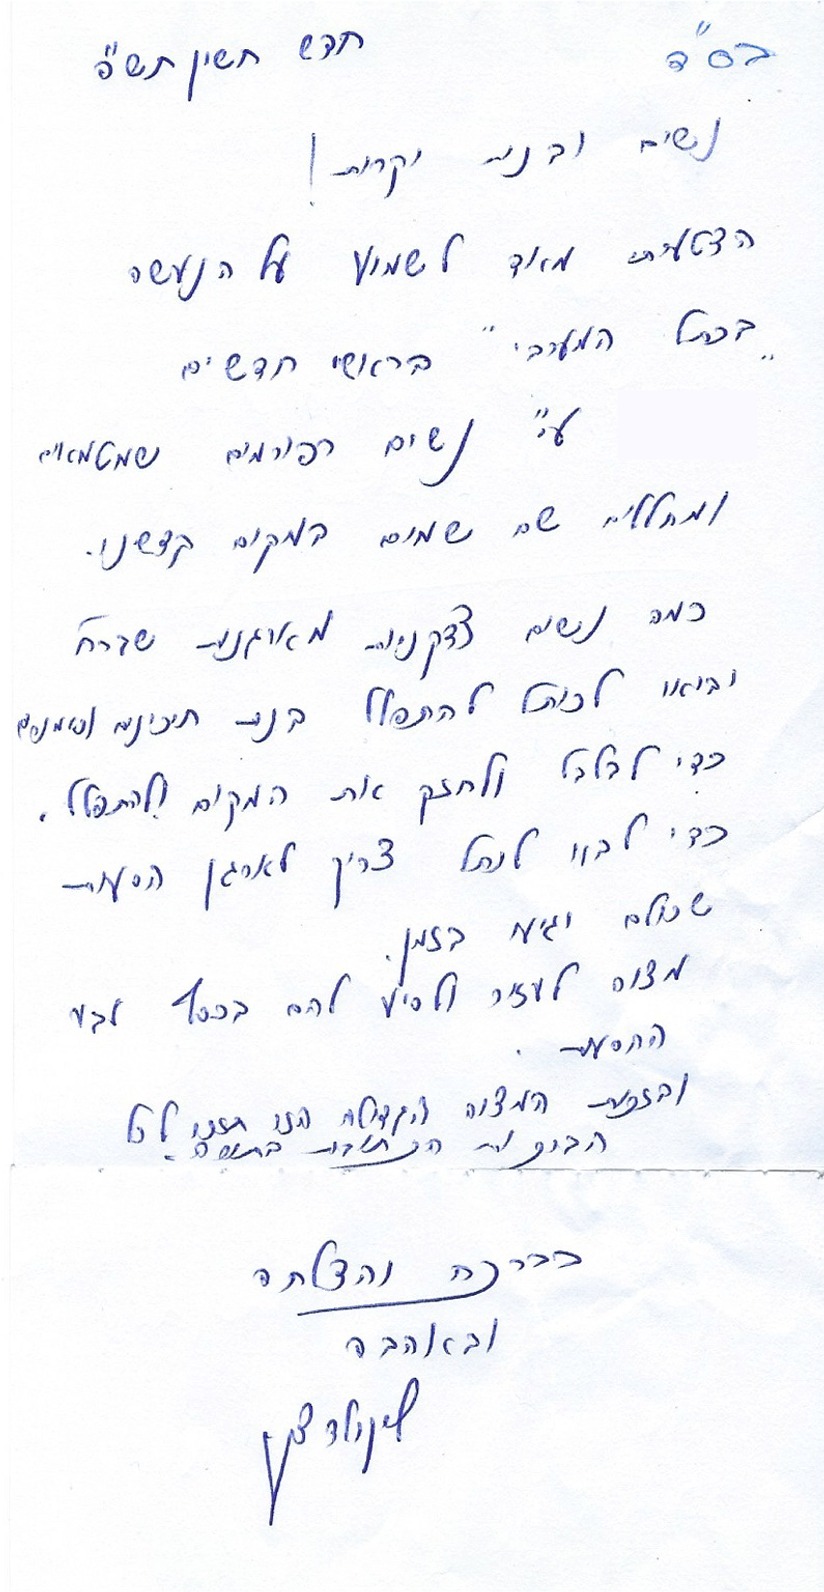 בס"ד
חדש חשון תש"פ
נשים ובנות יקרות!
הצטערתי מאוד לשמוע על הנעשה
"בכותל המערבי" בראשי חדשים
ע"י נשים רפורמים שמטמאים
ומחללים שם שמים במקום קדשנו.
כמה נשים צדקניות מארגנות שבר"ח
יבואו לכותל להתפלל בנות תיכונים וסמינרים
כדי לבלבל ולחזק את המקום ולהתפלל.
כדי לבוא לכותל צריך לארגן הסעות
שכולם יגיעו בזמן.
מצוה לעזור ולסייע להם בכסף לבצע
ההסעות.
ובזכות המצוה הגדולה הזו תזכו לכל
הברכות הכתובות בתורה.
בברכה והצלחה
ובאהבה